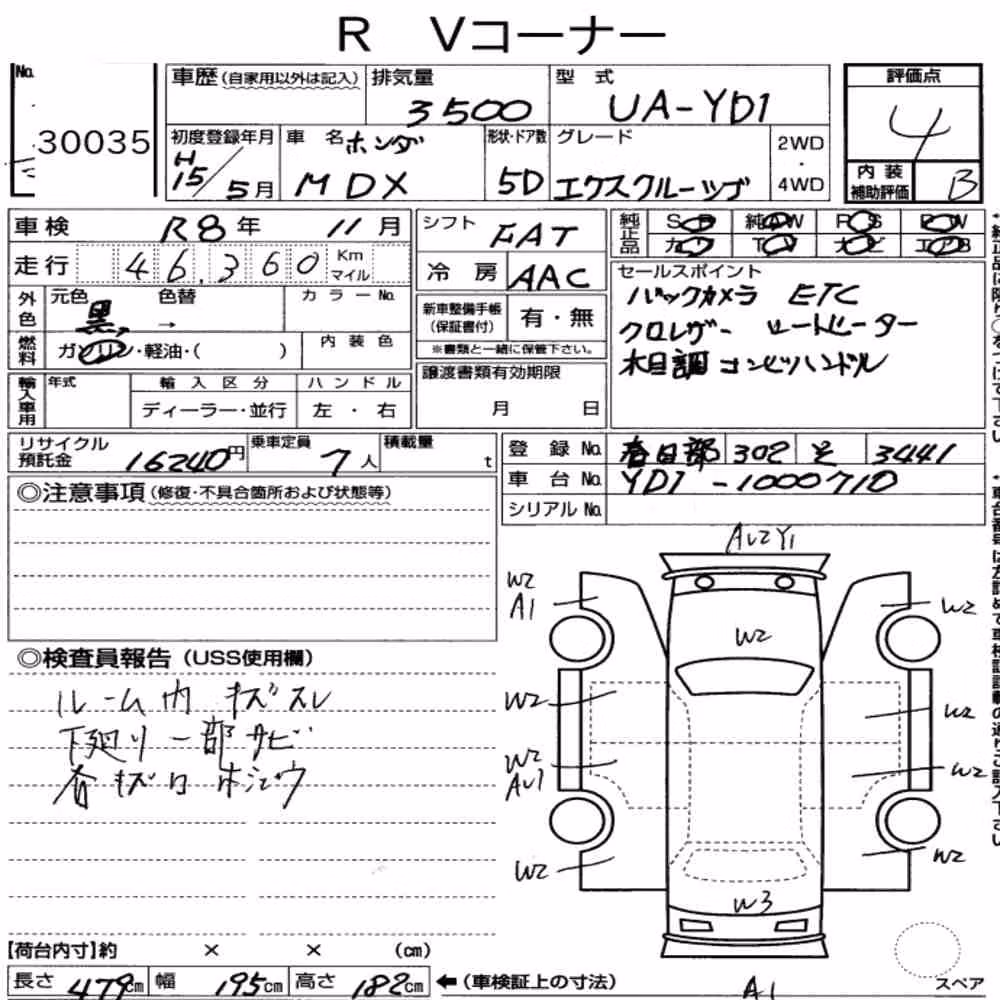 R Vコーナー
No. 30035
車歴 (自家用以外は記入)
排気量 3500
型式 UA-YD1
評価点 4
初度登録年月 H15/5月
車名 ホンダ MDX
形状・ドア数 5D
グレード エクスクルーシヴ
2WD・4WD
内装補助評価 B
車検 R8年 11月
シフト FAT
純正品 SR 純AW PS PW
カワ TV ナビ エアB
走行 46,360 Km マイル
冷房 AAC
セールスポイント
バックカメラ ETC
クロレザー シートヒーター
木目調コンビハンドル
外色 元色 黒 → 色替 カラーNo.
新車整備手帳(保証書付) 有・無
※書類と一緒に保管下さい。
燃料 ガソリン・軽油・( )
内装色
輸入車用 年式 輸入区分 ハンドル
ディーラー・並行 左・右
譲渡書類有効期限
月 日
リサイクル預託金 16240円
乗車定員 7人
積載量 t
登録No. 春日部 302 そ 3441
車台No. YD1-1000710
シリアルNo.
◎注意事項(修復・不具合箇所および状態等)
AU2Y1
W2
A1
W2
W2
W2
W2
W2
AU1
W2
W2
W2
W3
◎検査員報告 (USS使用欄)
ルーム内 キズスレ
下廻り一部サビ
各キズ凹 ホシュウ
【荷台内寸】約 × × (cm)
長さ 479cm 幅 195cm 高さ 182cm ←(車検証上の寸法)
A1
スペア